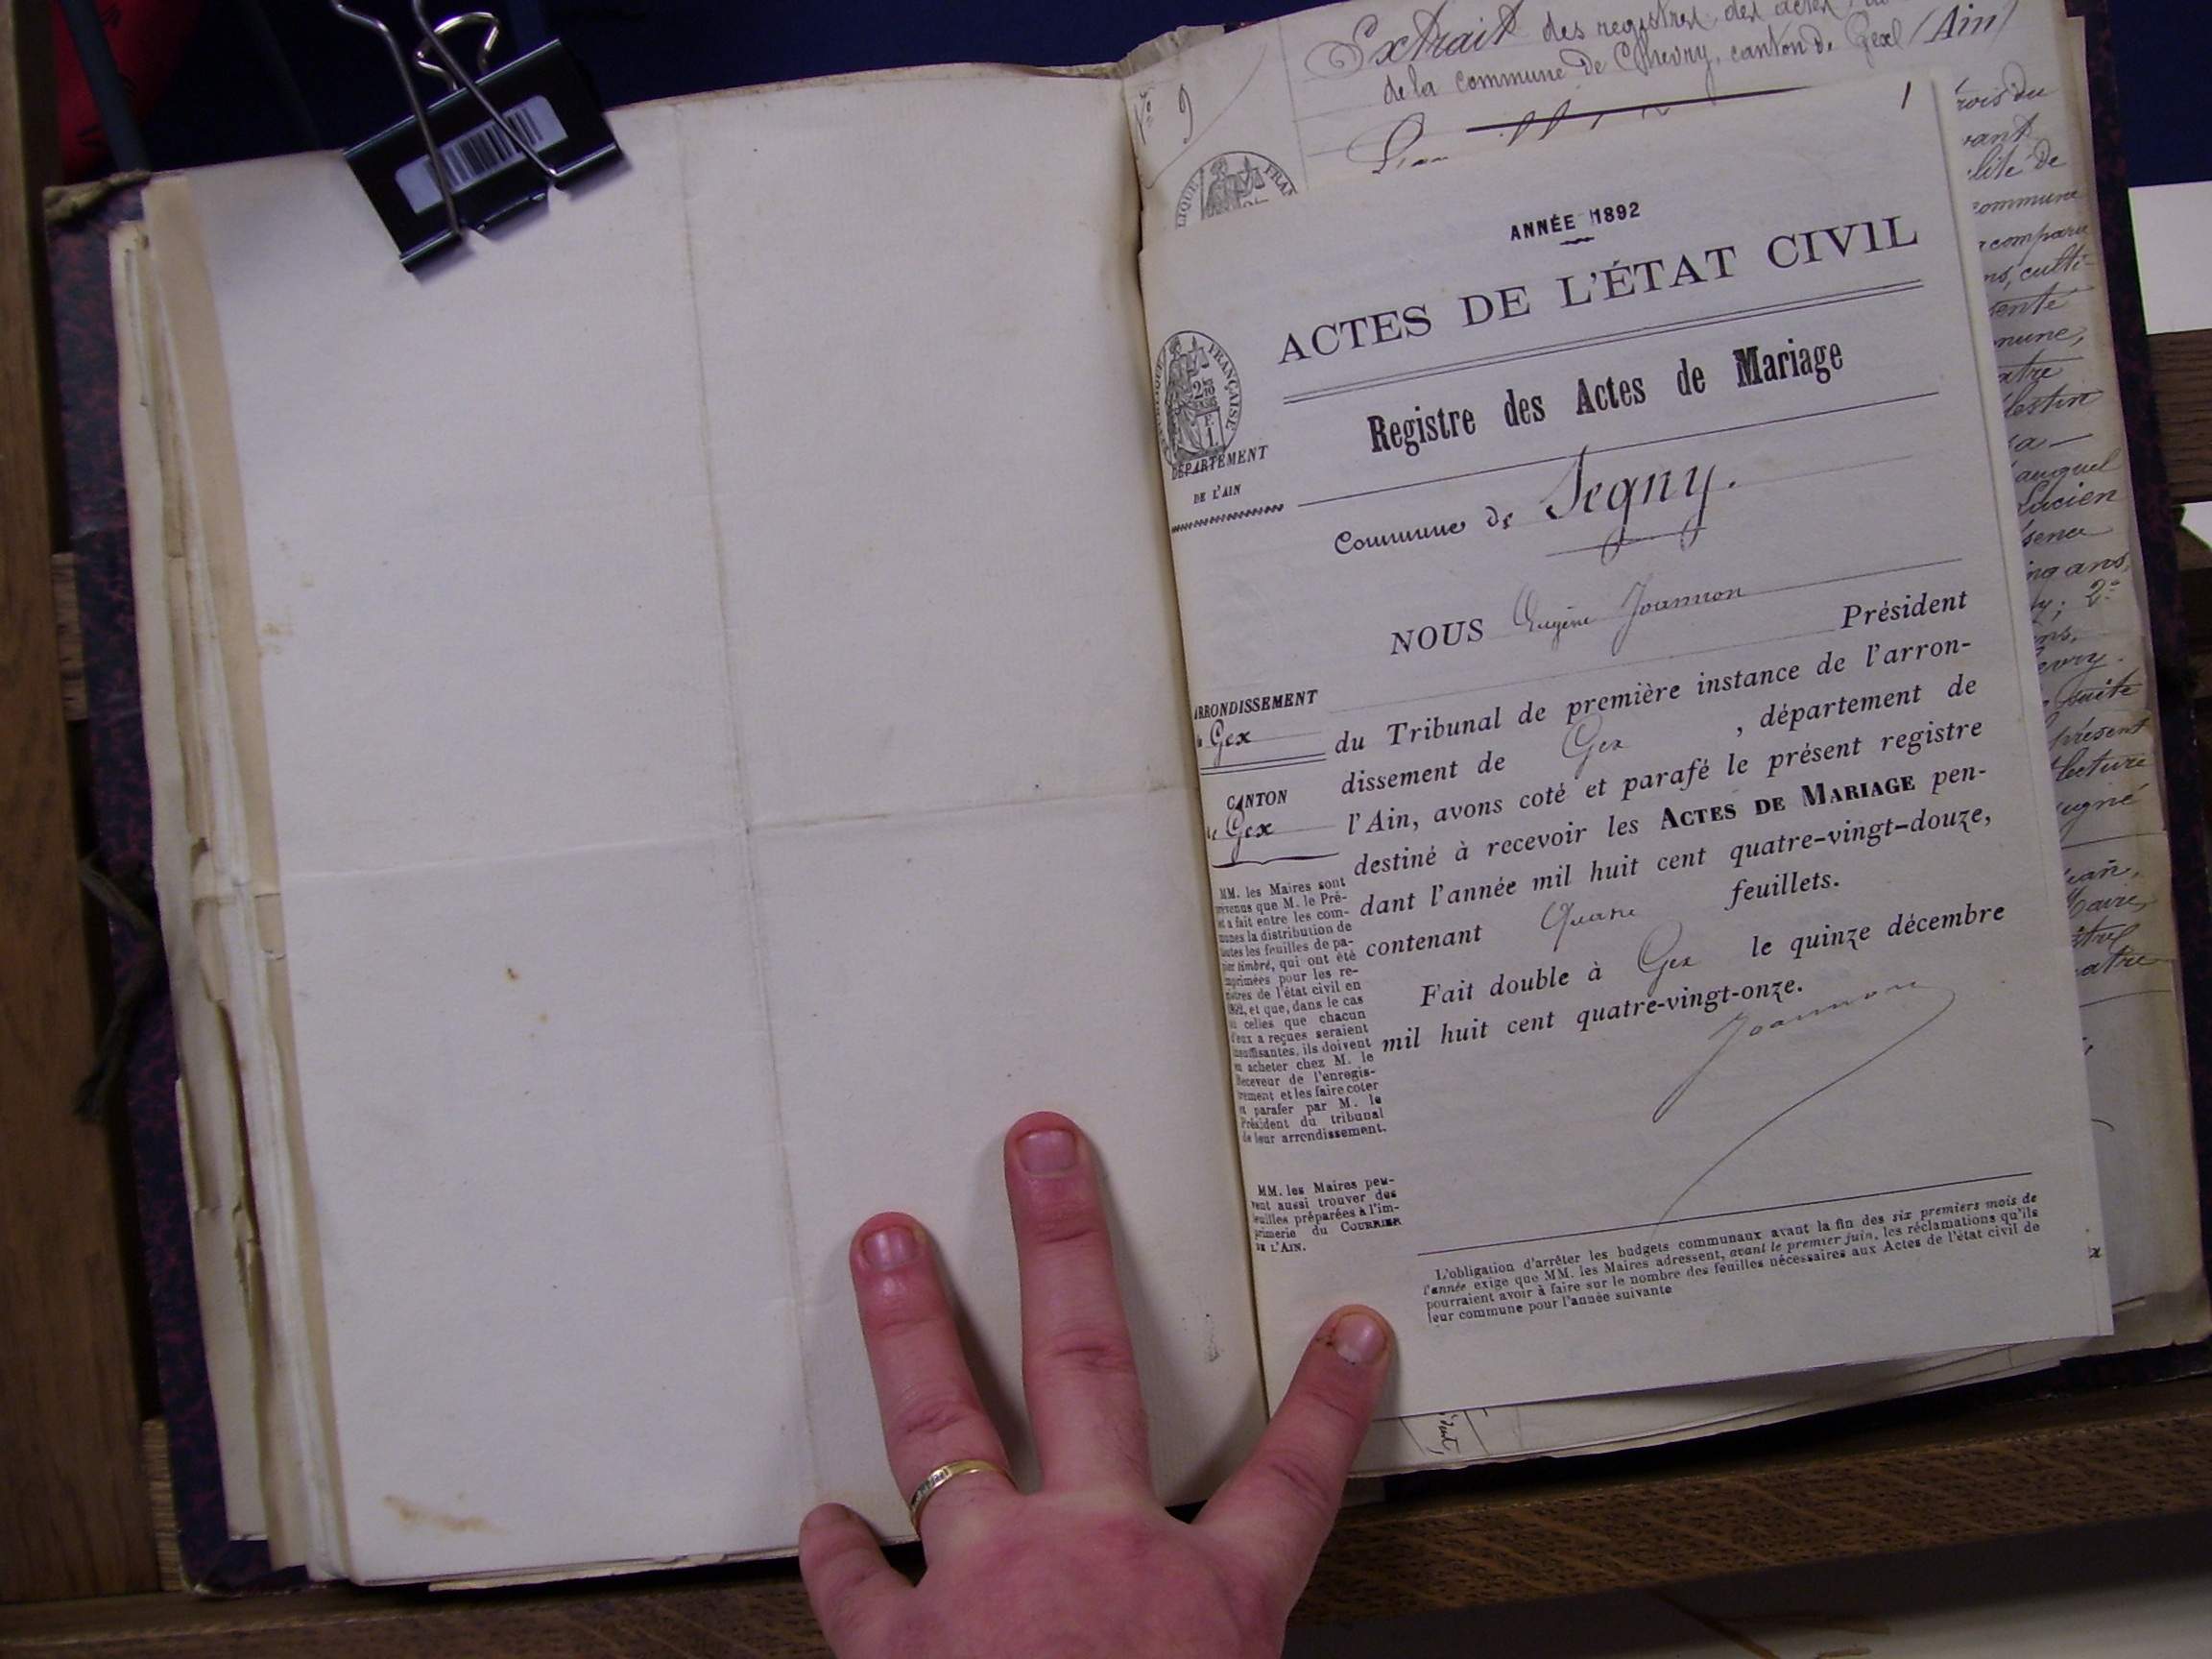 Extrait des registres des actes
de la commune de Chevry, canton de Gex (Ain)
No 9
1
ANNÉE 1892
ACTES DE L'ÉTAT CIVIL
Registre des Actes de Mariage
FRANÇAISE
DÉPARTEMENT
DE L'AIN
Commune de Segny.
NOUS Eugène Joannon
Président
du Tribunal de première instance de l'arron-
dissement de Gex, département de
l'Ain, avons coté et parafé le présent registre
destiné à recevoir les ACTES DE MARIAGE pen-
dant l'année mil huit cent quatre-vingt-douze,
contenant feuillets.
Fait double à Gex le quinze décembre
mil huit cent quatre-vingt-onze.
Joannon
ARRONDISSEMENT
Gex
CANTON
de Gex
MM. les Maires sont
prévenus que M. le Pré-
et a fait entre les com-
munes la distribution de
toutes les feuilles de pa-
pier timbré, qui ont été
imprimées pour les re-
gistres de l'état civil en
1892, et que, dans le cas
où celles que chacun
d'eux a reçues seraient
insuffisantes, ils doivent
en acheter chez M. le
Receveur de l'enregis-
trement et les faire coter
et parafer par M. le
Président du tribunal
de leur arrondissement.
MM. les Maires peu-
vent aussi trouver des
feuilles préparées à l'im-
primerie du COURRIER
DE L'AIN.
L'obligation d'arrêter les budgets communaux avant la fin des six premiers mois de
l'année exige que MM. les Maires adressent, avant le premier juin, les réclamations qu'ils
pourraient avoir à faire sur le nombre des feuilles nécessaires aux Actes de l'état civil de
leur commune pour l'année suivante
commune
culti-
auquel
Lucien
ans,
2°
suite
présent
lecture